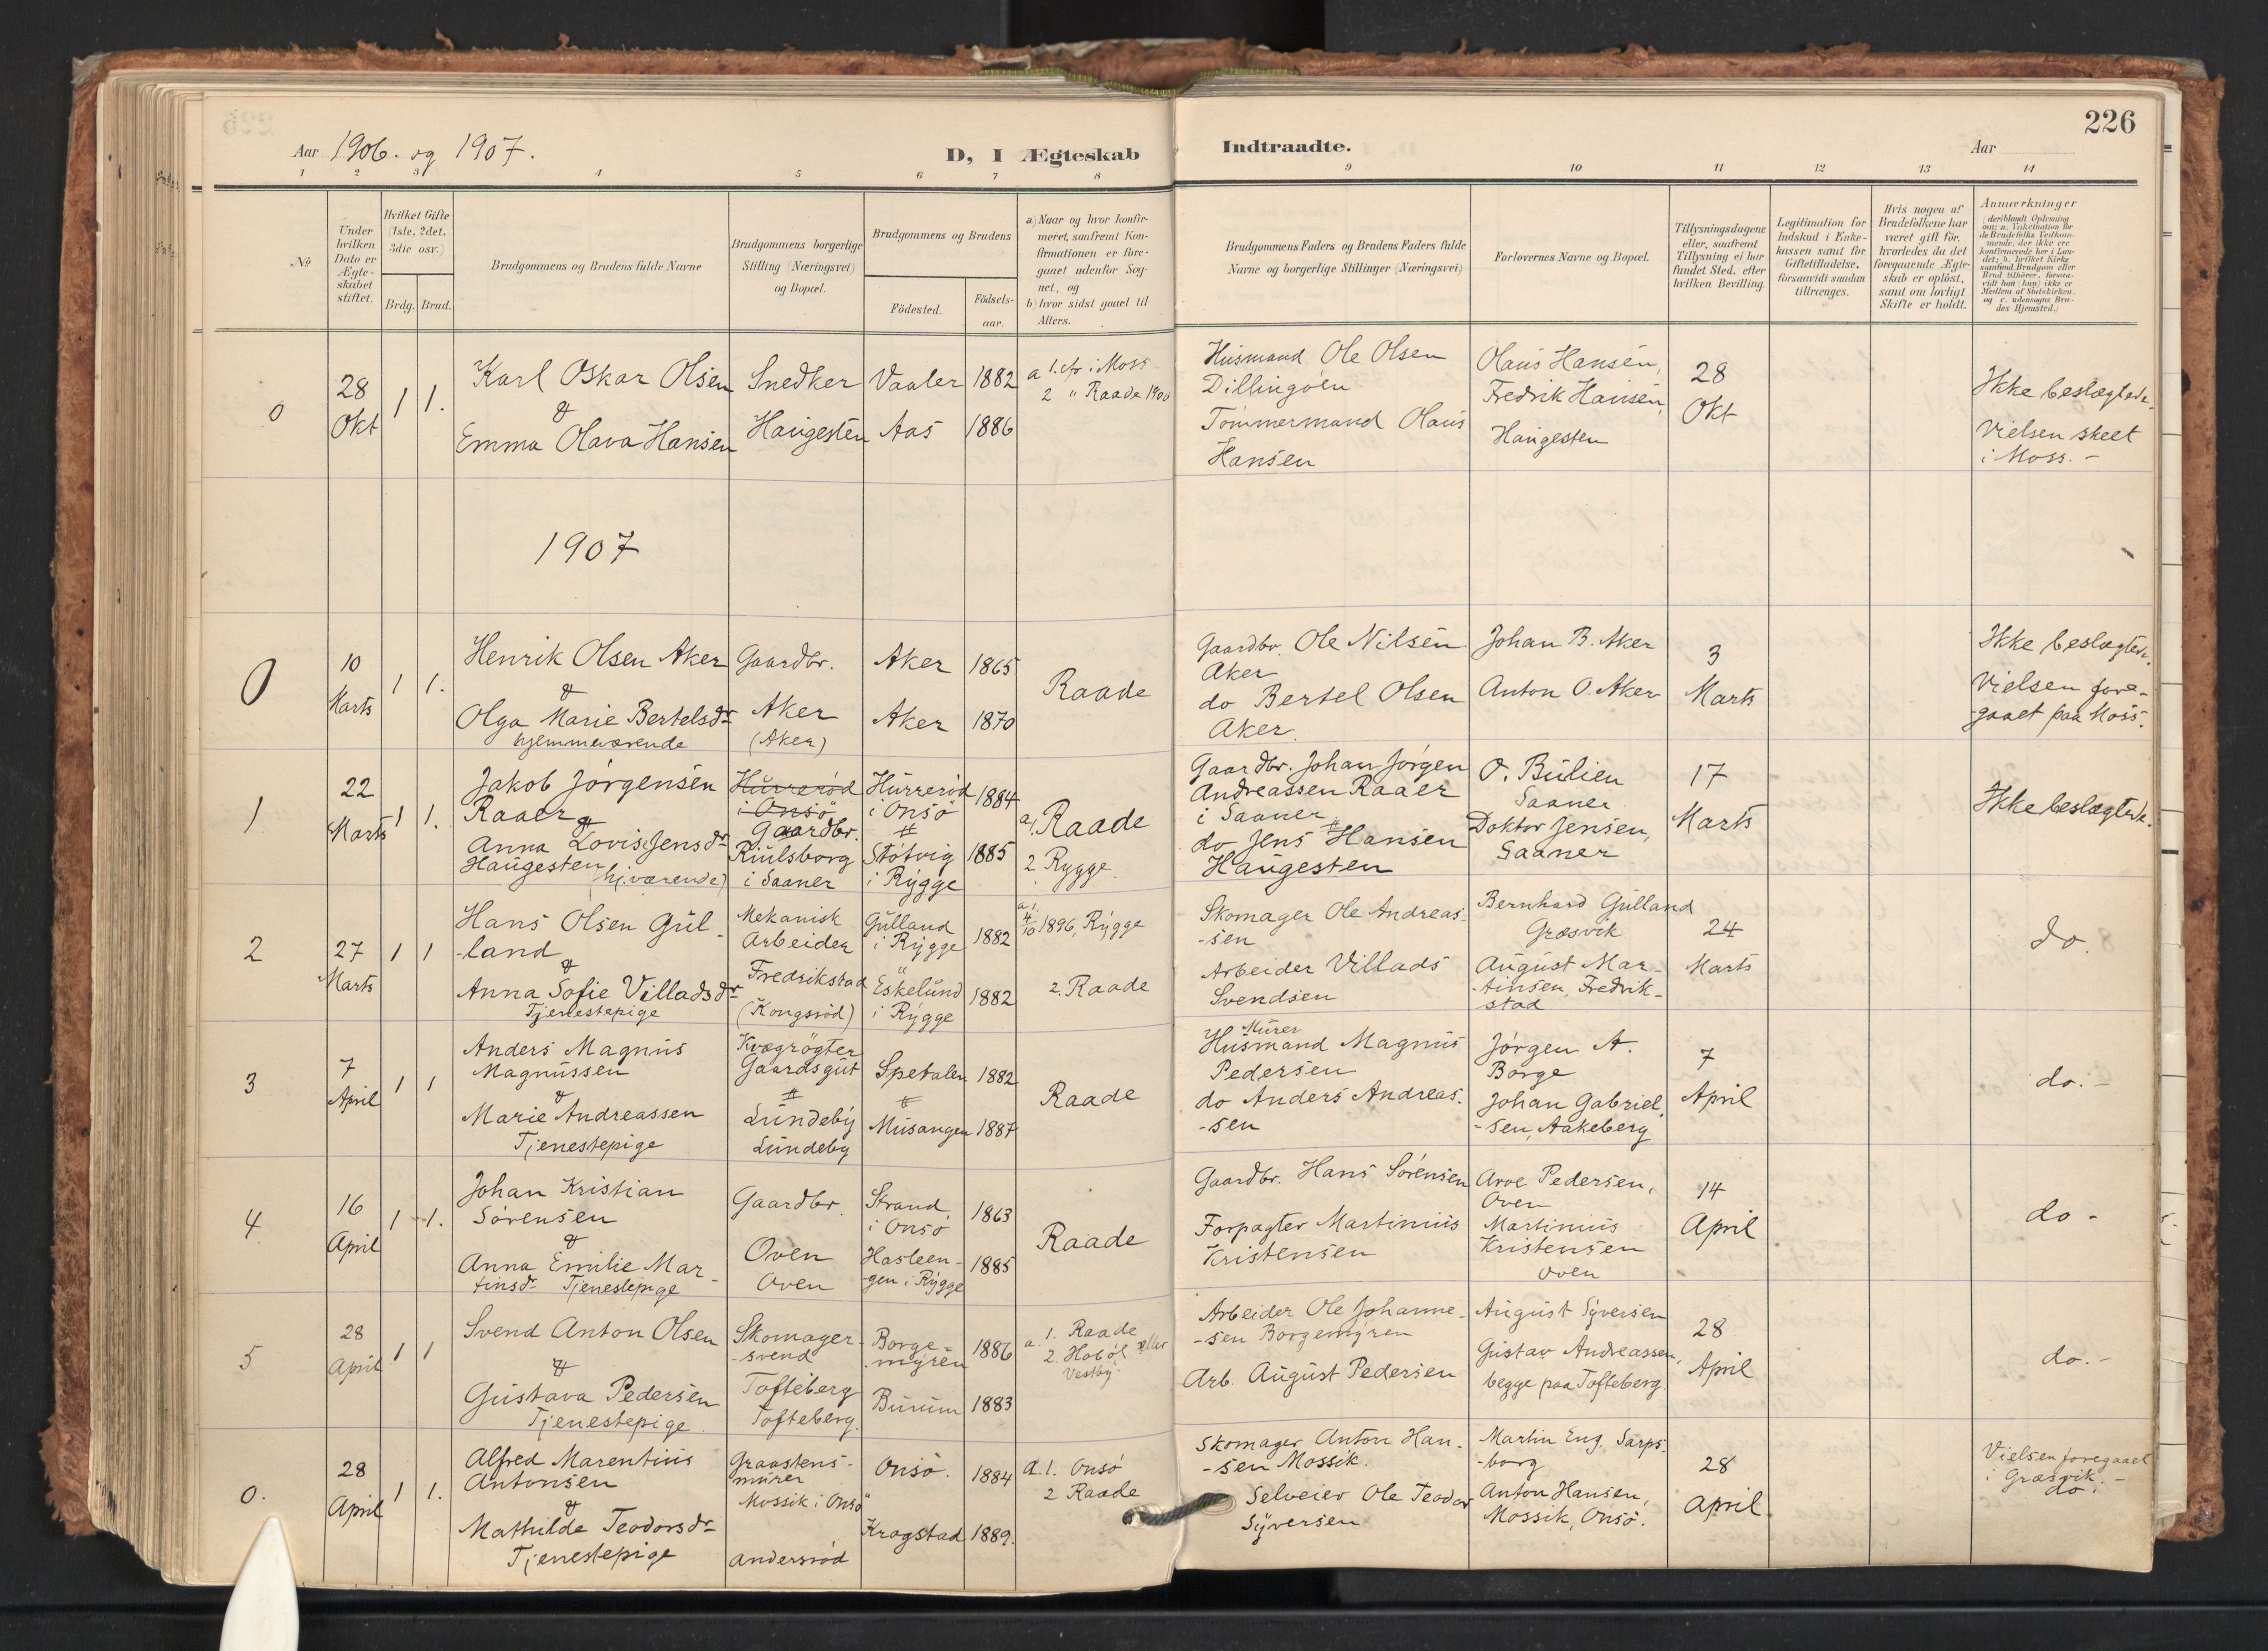 226
Aar 1906. og 1907.
D, I Ægteskab
Indtraadte.
Aar
1 2 3 4 5 6 7 8 9 10 11 12 13 14
No
Under hvilken Dato er Ægte-skabet stiftet.
Hvilket Gifte (1ste, 2det, 3die osv.)
Brdg. Brud.
Brudgommens og Brudens fulde Navne
Brudgommens borgerlige Stilling (Næringsvei) og Bopæl.
Brudgommens og Brudens
Födested.
Födsels-aar.
a) Naar og hvor konfir-meret, saafremt Kon-firmationen er fore-gaaet udenfor Sog-net, og
b) hvor sidst gaaet til Alters.
Brudgommens Faders og Brudens Faders fulde Navne og borgerlige Stillinger (Næringsvei)
Forlovernes Navne og Bopæl.
Tillysningsdagene eller, saafremt Tillysning ei har fundet Sted, efter hvilken Bevilling.
Legitimation for Indskud i Enke-kassen samt for Giftetilladelse, forsaavidt saadan tiltrænges.
Hvis nogen af Brudefolkene har været gift för, hvorledes da det foregaaende Ægte-skab er oplöst, samt om lovligt Skifte er holdt.
Anmærkninger
0
28
Okt
1 1.
Karl Oskar Olsen
&
Emma Olava Hansen
Snedker
Haugesten
Vaaler 1882
Aas 1886
a 1. cfr i Moss
2 " Raade 1900
Husmand Ole Olsen
Dillingöen
Tömmermand Olaus
Hansen
Olaus Hansen,
Fredrik Hansen,
Haugesten
28
Okt
Ikke beslægtede.
Vielsen skeet
i Moss. -
1907
0
10
Marts
1 1.
Henrik Olsen Aker
&
Olga Marie Bertelsdr
hjemmeværende
Gaardbr.
Aker
(Aker)
Aker 1865
Aker 1870
Raade
Gaardbr. Ole Nilsen
Aker
do Bertel Olsen
Aker.
Johan B. Aker
Anton O. Aker
3
Marts
Ikke beslægtede.
Vielsen fore-
gaaet paa Moss.
1
22
Marts
1 1.
Jakob Jörgensen
Raaer &
Anna Lovise Jensdr
Haugesten (hj.værende)
Hurreröd
i Onsö
Gaardbr.
Riulsborg
i Saaner
Hurreröd
i Onsö
1884
Stötvig
i Rygge
1885
a 1. Raade
2 Rygge.
Gaardbr. Johan Jörgen
Andreassen Raaer
i Saaner
do Jens Hansen
Haugesten
O. Bulien
Saaner
Doktor Jensen,
Saaner
17
Marts
Ikke beslægtede.
2
27
Marts
1 1
Hans Olsen Gul-
-land
&
Anna Sofie Villadsdr
Tjenestepige
Mekanisk
Arbeider
Fredrikstad
(Kongsröd)
Gulland
i Rygge
1882
Eskelund
i Rygge
1882
a 1.
4/10 1896, Rygge
2. Raade
Skomager Ole Andreas-
-sen
Arbeider Villads
Svendsen
Bernhard Gulland
Græsvik
August Mar-
-tinsen, Fredrik-
stad
24
Marts
do.
3
7
April
1 1
Anders Magnus
Magnussen
&
Marie Andreassen
Tjenestepige
Kvægrögter
Gaardsgut
Lundeby
Lundeby
Spetalen 1882
Musangen 1887
Raade
Murer
Husmand Magnus
Pedersen
do Anders Andreas-
-sen
Jörgen A.
Borge
Johan Gabriel-
-sen, Aakeberg
7
April
do. -
4
16
April
1 1.
Johan Kristian
Sörensen
&
Anna Emilie Mar-
tinsdr Tjenestepige
Gaardbr.
Oven
Oven
Strand
i Onsö
1863
Hasleen-
-gen i Rygge
1885
Raade
Gaardbr. Hans Sörensen
Forpagter Martinius
Kristensen
Arve Pedersen,
Oven
Martinius
Kristensen
Oven
14
April
do -
5
28
April
1 1
Svend Anton Olsen
&
Gustava Pedersen
Tjenestepige
Skomager-
-svend
Tofteberg
Tofteberg.
Borge-
myren
1886
Burum 1883
a. 1. Raade
2. Hoböl eller
Vestby
Arbeider Ole Johanne-
-sen Borgemyren
Arb. August Pedersen
August Syversen
Gustav Andreassen,
begge paa Tofteberg.
28
April
do. -
0.
28
April
1 1.
Alfred Marentius
Antonsen
&
Mathilde Teodorsdr
Tjenestepige
Graastens-
murer
Mossik i Onsö
Andersröd
Onsö. 1884
Kragstad 1889.
a. 1. Onsö
2 Raade
Skomager Anton Han-
-sen Mossik.
Selveier Ole Teodor
Syversen
Martin Eng, Sarps-
-borg
Anton Hansen,
Mossik, Onsö.
28
April
Vielsen foregaaet
i Græsvik. -
do.